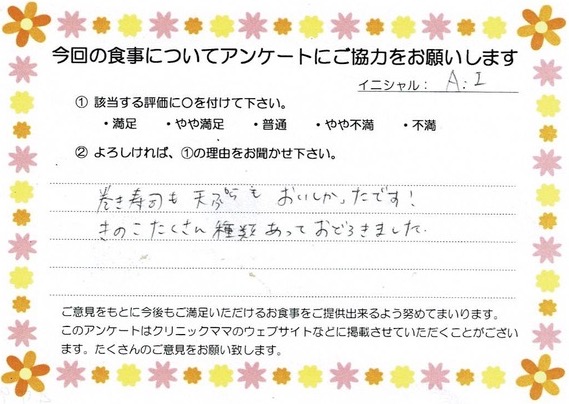 今回の食事についてアンケートにご協力をお願いします
イニシャル： A.I
① 該当する評価に○を付けて下さい。
・満足　・やや満足　・普通　・やや不満　・不満
② よろしければ、①の理由をお聞かせ下さい。
巻き寿司も 天ぷらも おいしかったです！
きのこたくさん 種類あっておどろきました.
ご意見をもとに今後もご満足いただけるお食事をご提供出来るよう努めてまいります。
このアンケートはクリニックママのウェブサイトなどに掲載させていただくことがござい
ます。たくさんのご意見をお願い致します。